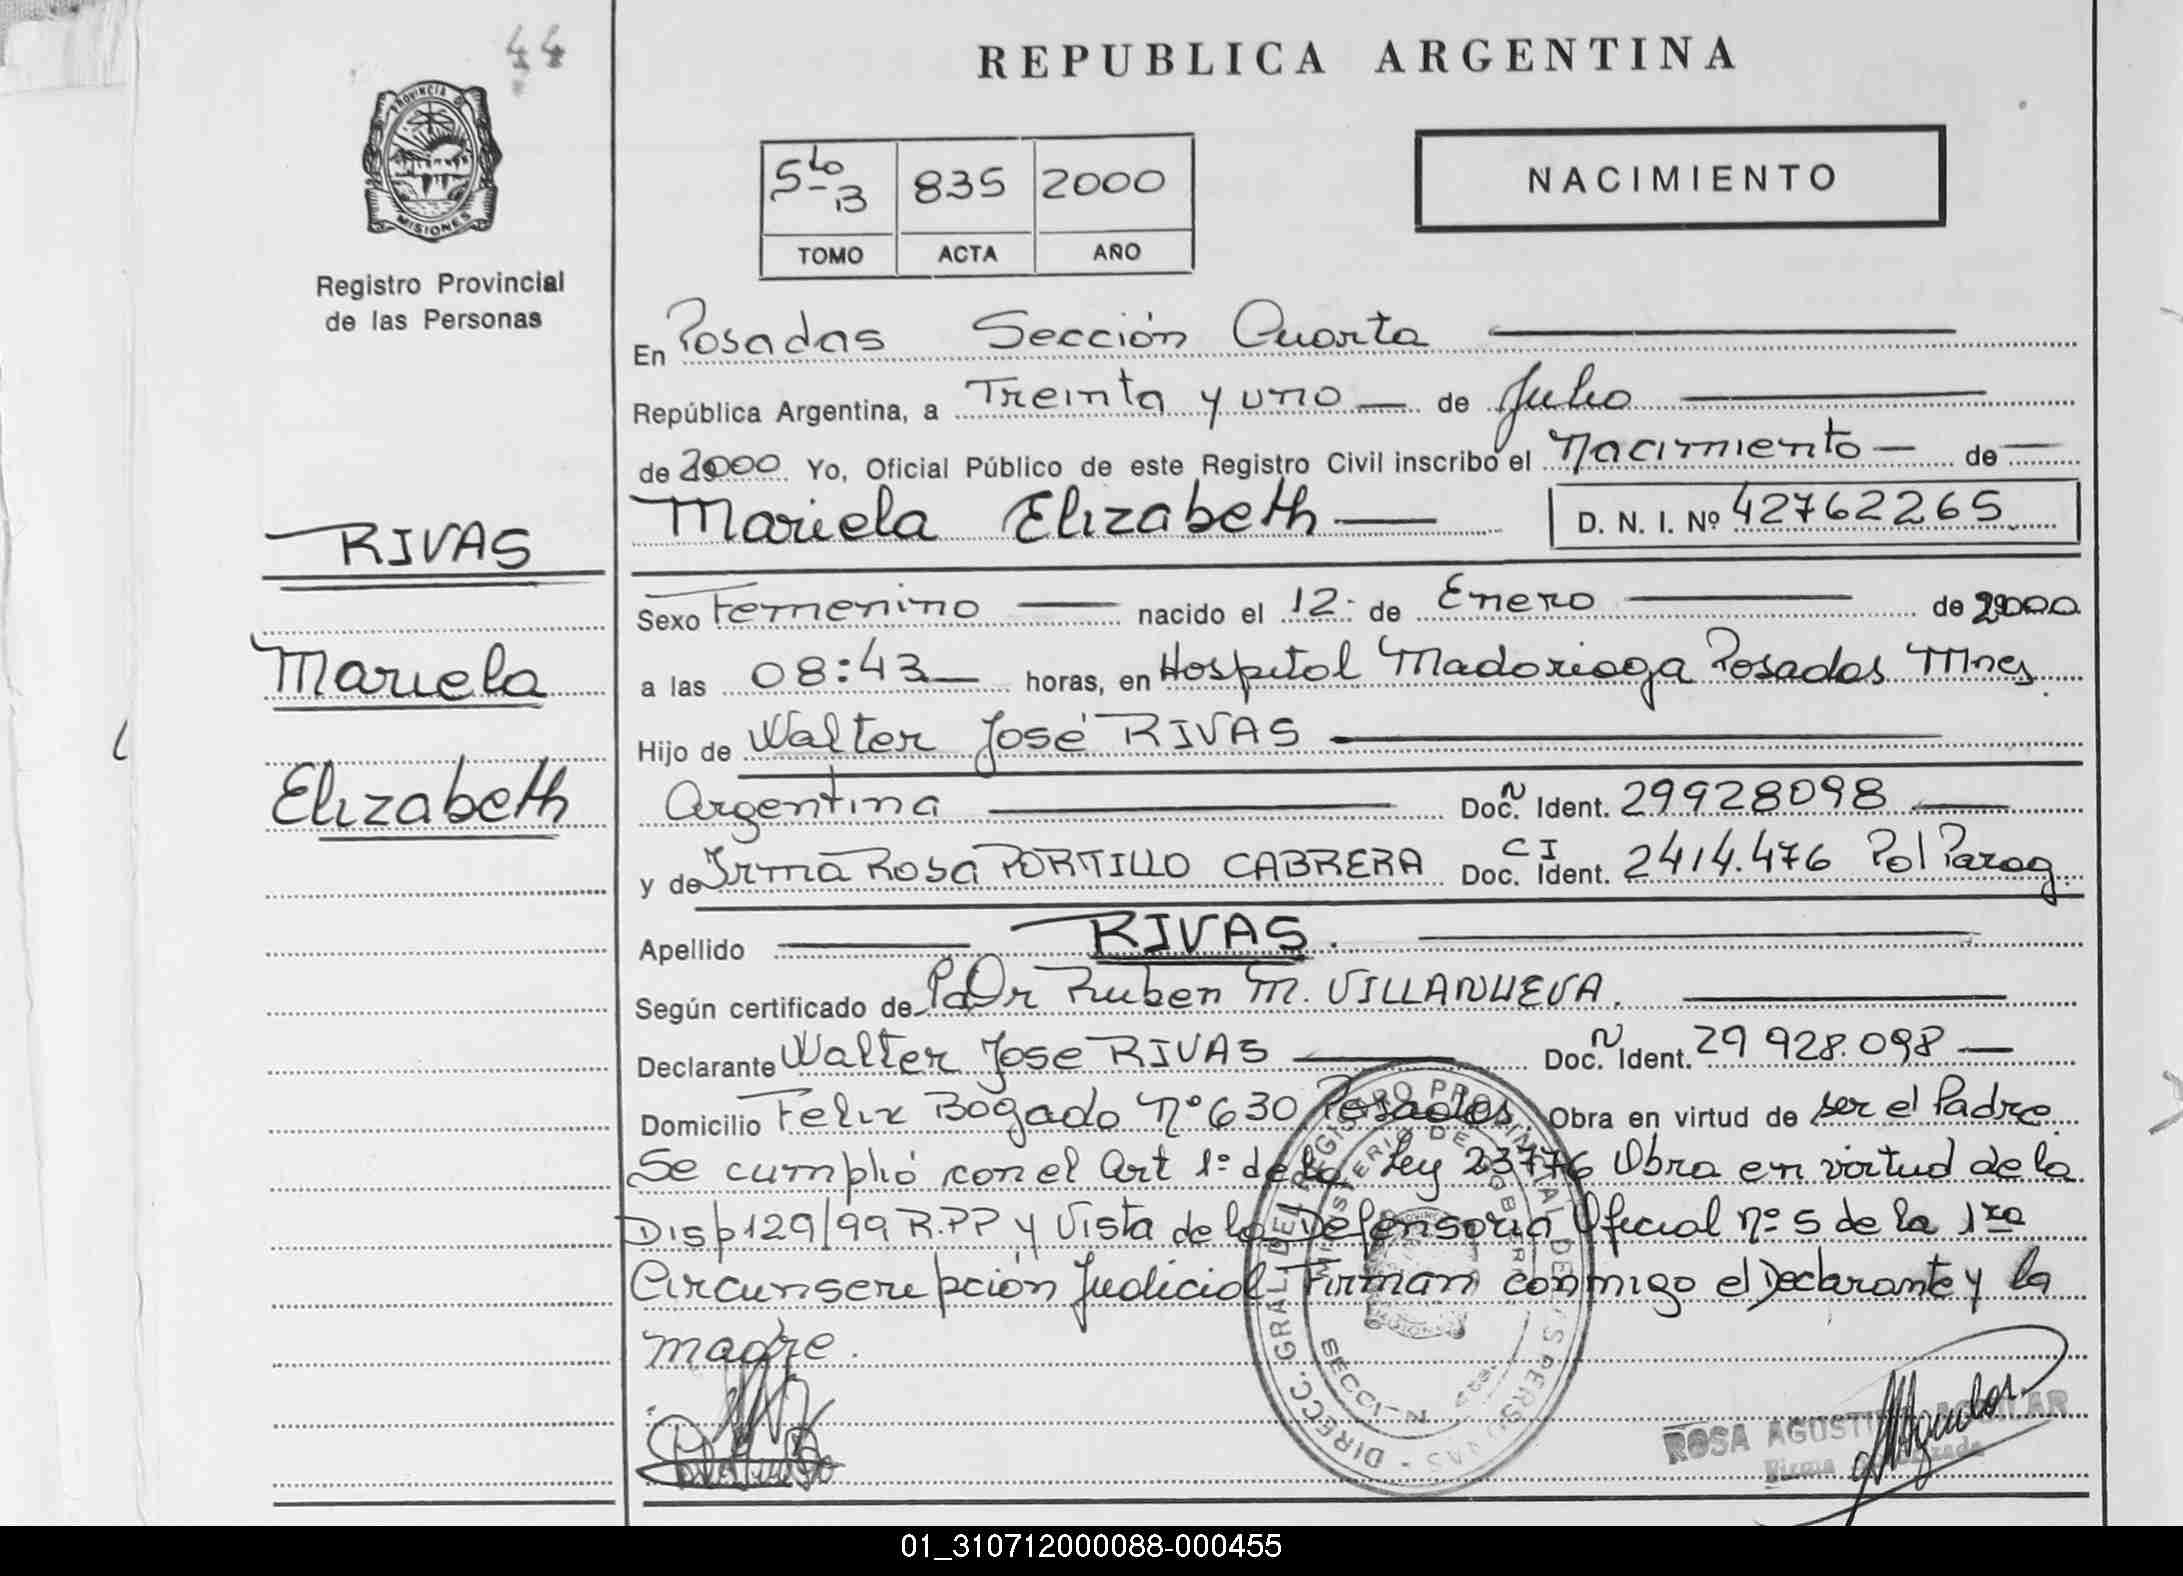 44
REPUBLICA ARGENTINA
PROVINCIA DE
MISIONES
Registro Provincial
de las Personas
5to B 835 2000
TOMO ACTA AÑO
NACIMIENTO
En Posadas Sección Cuarta
República Argentina, a Treinta y uno de Julio
de 2000 Yo, Oficial Público de este Registro Civil inscribo el Nacimiento de
Mariela Elizabeth D. N. I. Nº 42762265
RIVAS
Mariela
Elizabeth
Sexo Femenino nacido el 12 de Enero de 2000
a las 08:43 horas, en Hospital Madariaga Posadas Mnes
Hijo de Walter José RIVAS
Argentina Doc. N Ident. 29928098
y de Irma Rosa PORTILLO CABRERA Doc. CI Ident. 2414.476 Pol Parag.
Apellido RIVAS.
Según certificado de Dr Ruben M. VILLANUEVA.
Declarante Walter Jose RIVAS Doc. N Ident. 29 928.098
Domicilio Felix Bogado Nº 630 Posadas. Obra en virtud de ser el Padre.
Se cumplió con el Art 1º de la Ley 23776 Obra en virtud de la
Disp 129/99 R.PP y Vista de la Defensoria Oficial nº 5 de la 1ra
Circunscrepción Judicial Firman conmigo el Declarante y la
madre.
DIRECC. GRAL. DEL REGISTRO PROVINCIAL DE LAS PERSONAS
MINISTERIO DE GOBIERNO
SECCION
ROSA AGUSTINA AGUILAR
Firma
01_310712000088-000455